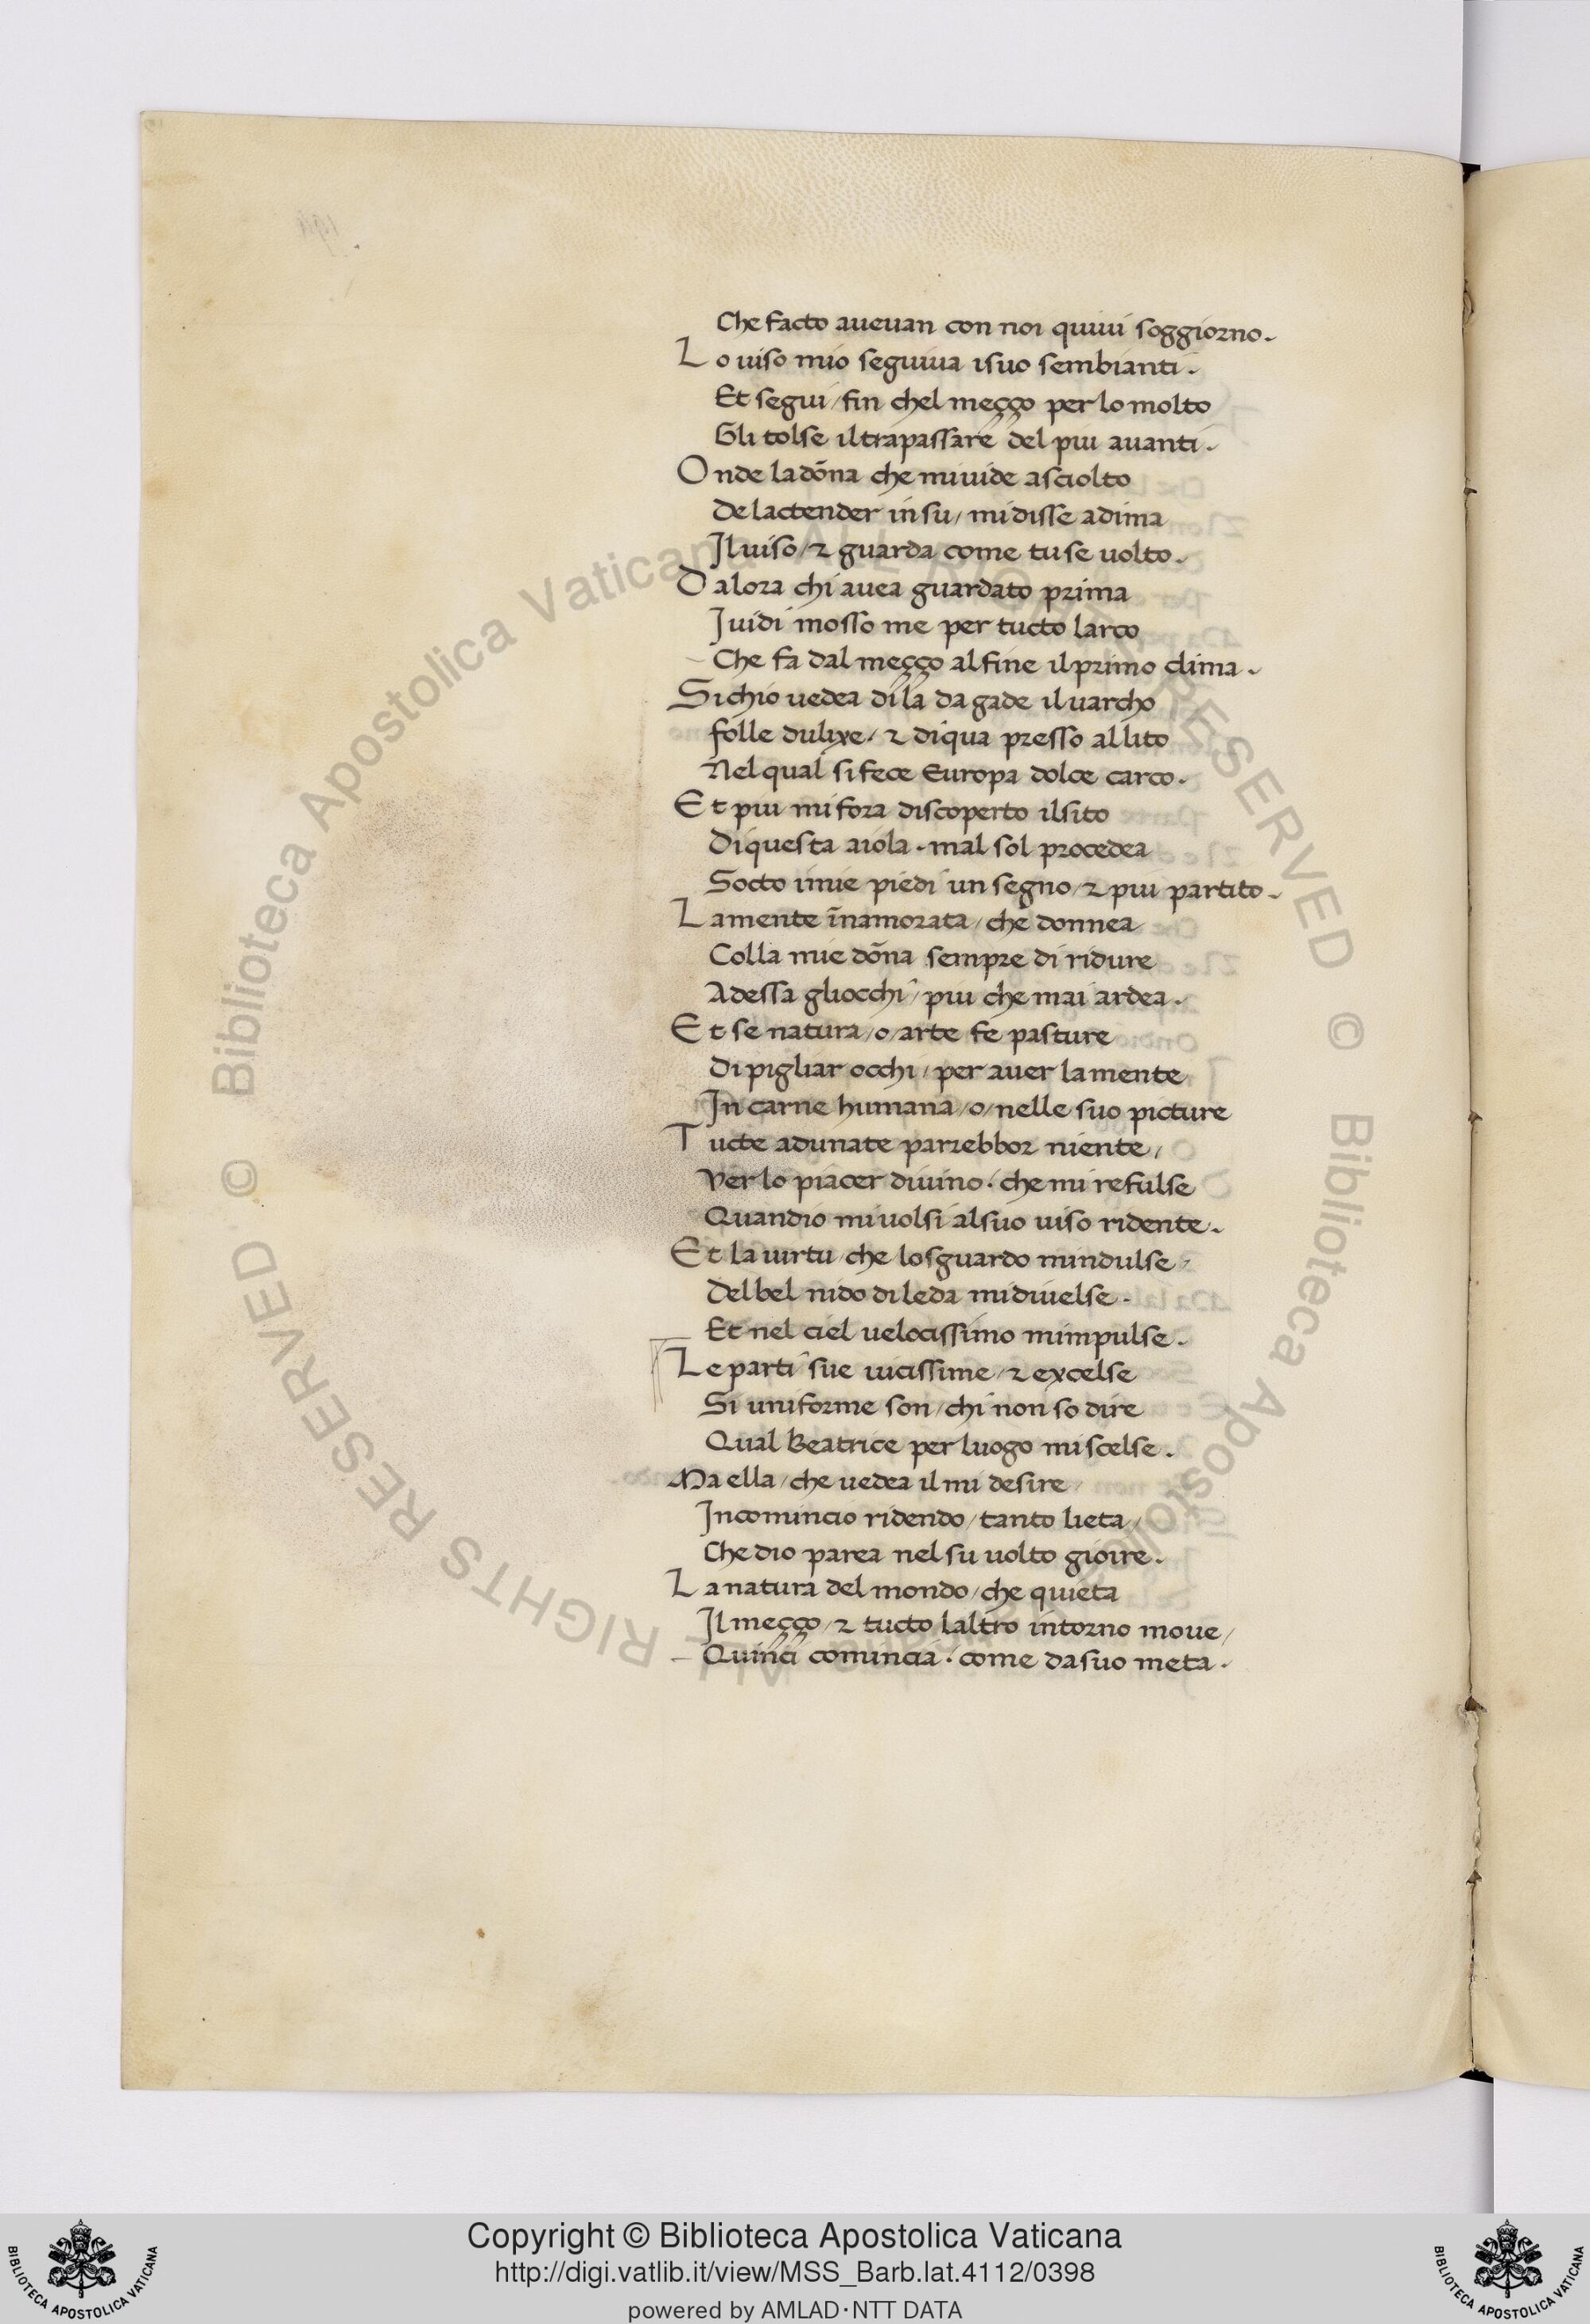 Che facto aueuan con noi quiui soggiorno.
Lo uiso mio seguiua isuo sembianti.
Et segui / fin chel meçço per lo molto
Gli tolse il trapassare del piu auanti.
Onde la dōna che mi uide asciolto
De lactender in su / mi disse adima
Il uiso / ⁊ guarda come tu se uolto.
Dalora chi auea guardato prima
I uidi mosso me per tucto larco
Che fa dal meçço al fine il primo clima.
Sichio uedea di la da gade il uarcho
folle dulixe / ⁊ di qua presso al lito
Nel qual si fece Europa dolce carco.
Et piu mi fora discoperto il sito
Di questa aiola . mal sol procedea
Socto imie piedi un segno / ⁊ piu partito.
La mente īnamorata / che donnea
Colla mie dōna sempre di ridure
Ad essa gliocchi / piu che mai ardea.
Et se natura / o / arte fe pasture
Di pigliar occhi / per auer la mente
In carne humana / o / nelle suo picture
Tucte adunate parrebbor niente /
Ver lo piacer diuino . che mi refulse
Quandio mi uolsi al suo uiso ridente.
Et la uirtu / che lo sguardo mindulse /
Del bel nido di leda mi diuelse.
Et nel ciel uelocissimo mimpulse.
Le parti sue uicissime / ⁊ excelse
Si uniforme son / chi non so dire
Qual Beatrice per luogo mi scelse.
Ma ella / che uedea il mi desire /
Incomincio ridendo / tanto lieta /
Che dio parea nel su uolto gioire.
La natura del mondo / che quieta
Il meçço / ⁊ tucto laltro intorno moue /
Quinci comincia . come da suo meta.
© Biblioteca Apostolica Vaticana ALL RIGHTS RESERVED © Biblioteca Apostolica Vaticana ALL RIGHTS RESERVED
Copyright © Biblioteca Apostolica Vaticana
http://digi.vatlib.it/view/MSS_Barb.lat.4112/0398
powered by AMLAD·NTT DATA
BIBLIOTECA APOSTOLICA VATICANA
BIBLIOTECA APOSTOLICA VATICANA